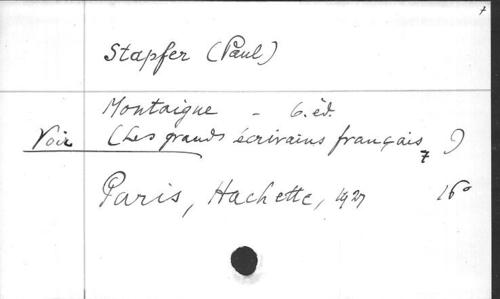 7
Stapfer (Paul)
Montaigne - 6. éd.
Voir (Les grands écrivains français, 7)
Paris, Hachette, 1927 16°